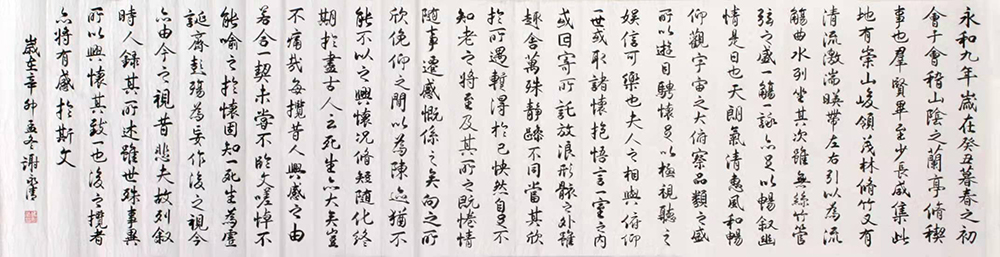 永和九年歲在癸丑暮春之初
會于會稽山陰之蘭亭脩稧
事也群賢畢至少長咸集此
地有崇山峻領茂林脩竹又有
清流激湍暎帶左右引以為流
觴曲水列坐其次雖無絲竹管
弦之盛一觴一詠亦足以暢叙幽
情是日也天朗氣清惠風和暢
仰觀宇宙之大俯察品類之盛
所以遊目騁懷足以極視聽之
娛信可樂也夫人之相與俯仰
一世或取諸懷抱悟言一室之內
或因寄所託放浪形骸之外雖
趣舍萬殊静躁不同當其欣
於所遇暫得於己快然自足不
知老之將至及其所之既惓情
隨事遷感慨係之矣向之所
欣俛仰之間以為陳迹猶不
能不以之興懷況脩短隨化終
期於盡古人云死生亦大矣豈
不痛哉每攬昔人興感之由
若合一契未嘗不臨文嗟悼不
能喻之於懷固知一死生為虛
誕齊彭殤為妄作後之視今
亦由今之視昔悲夫故列叙
時人錄其所述雖世殊事異
所以興懷其致一也後之攬者
亦將有感於斯文
歲在辛卯孟冬謝